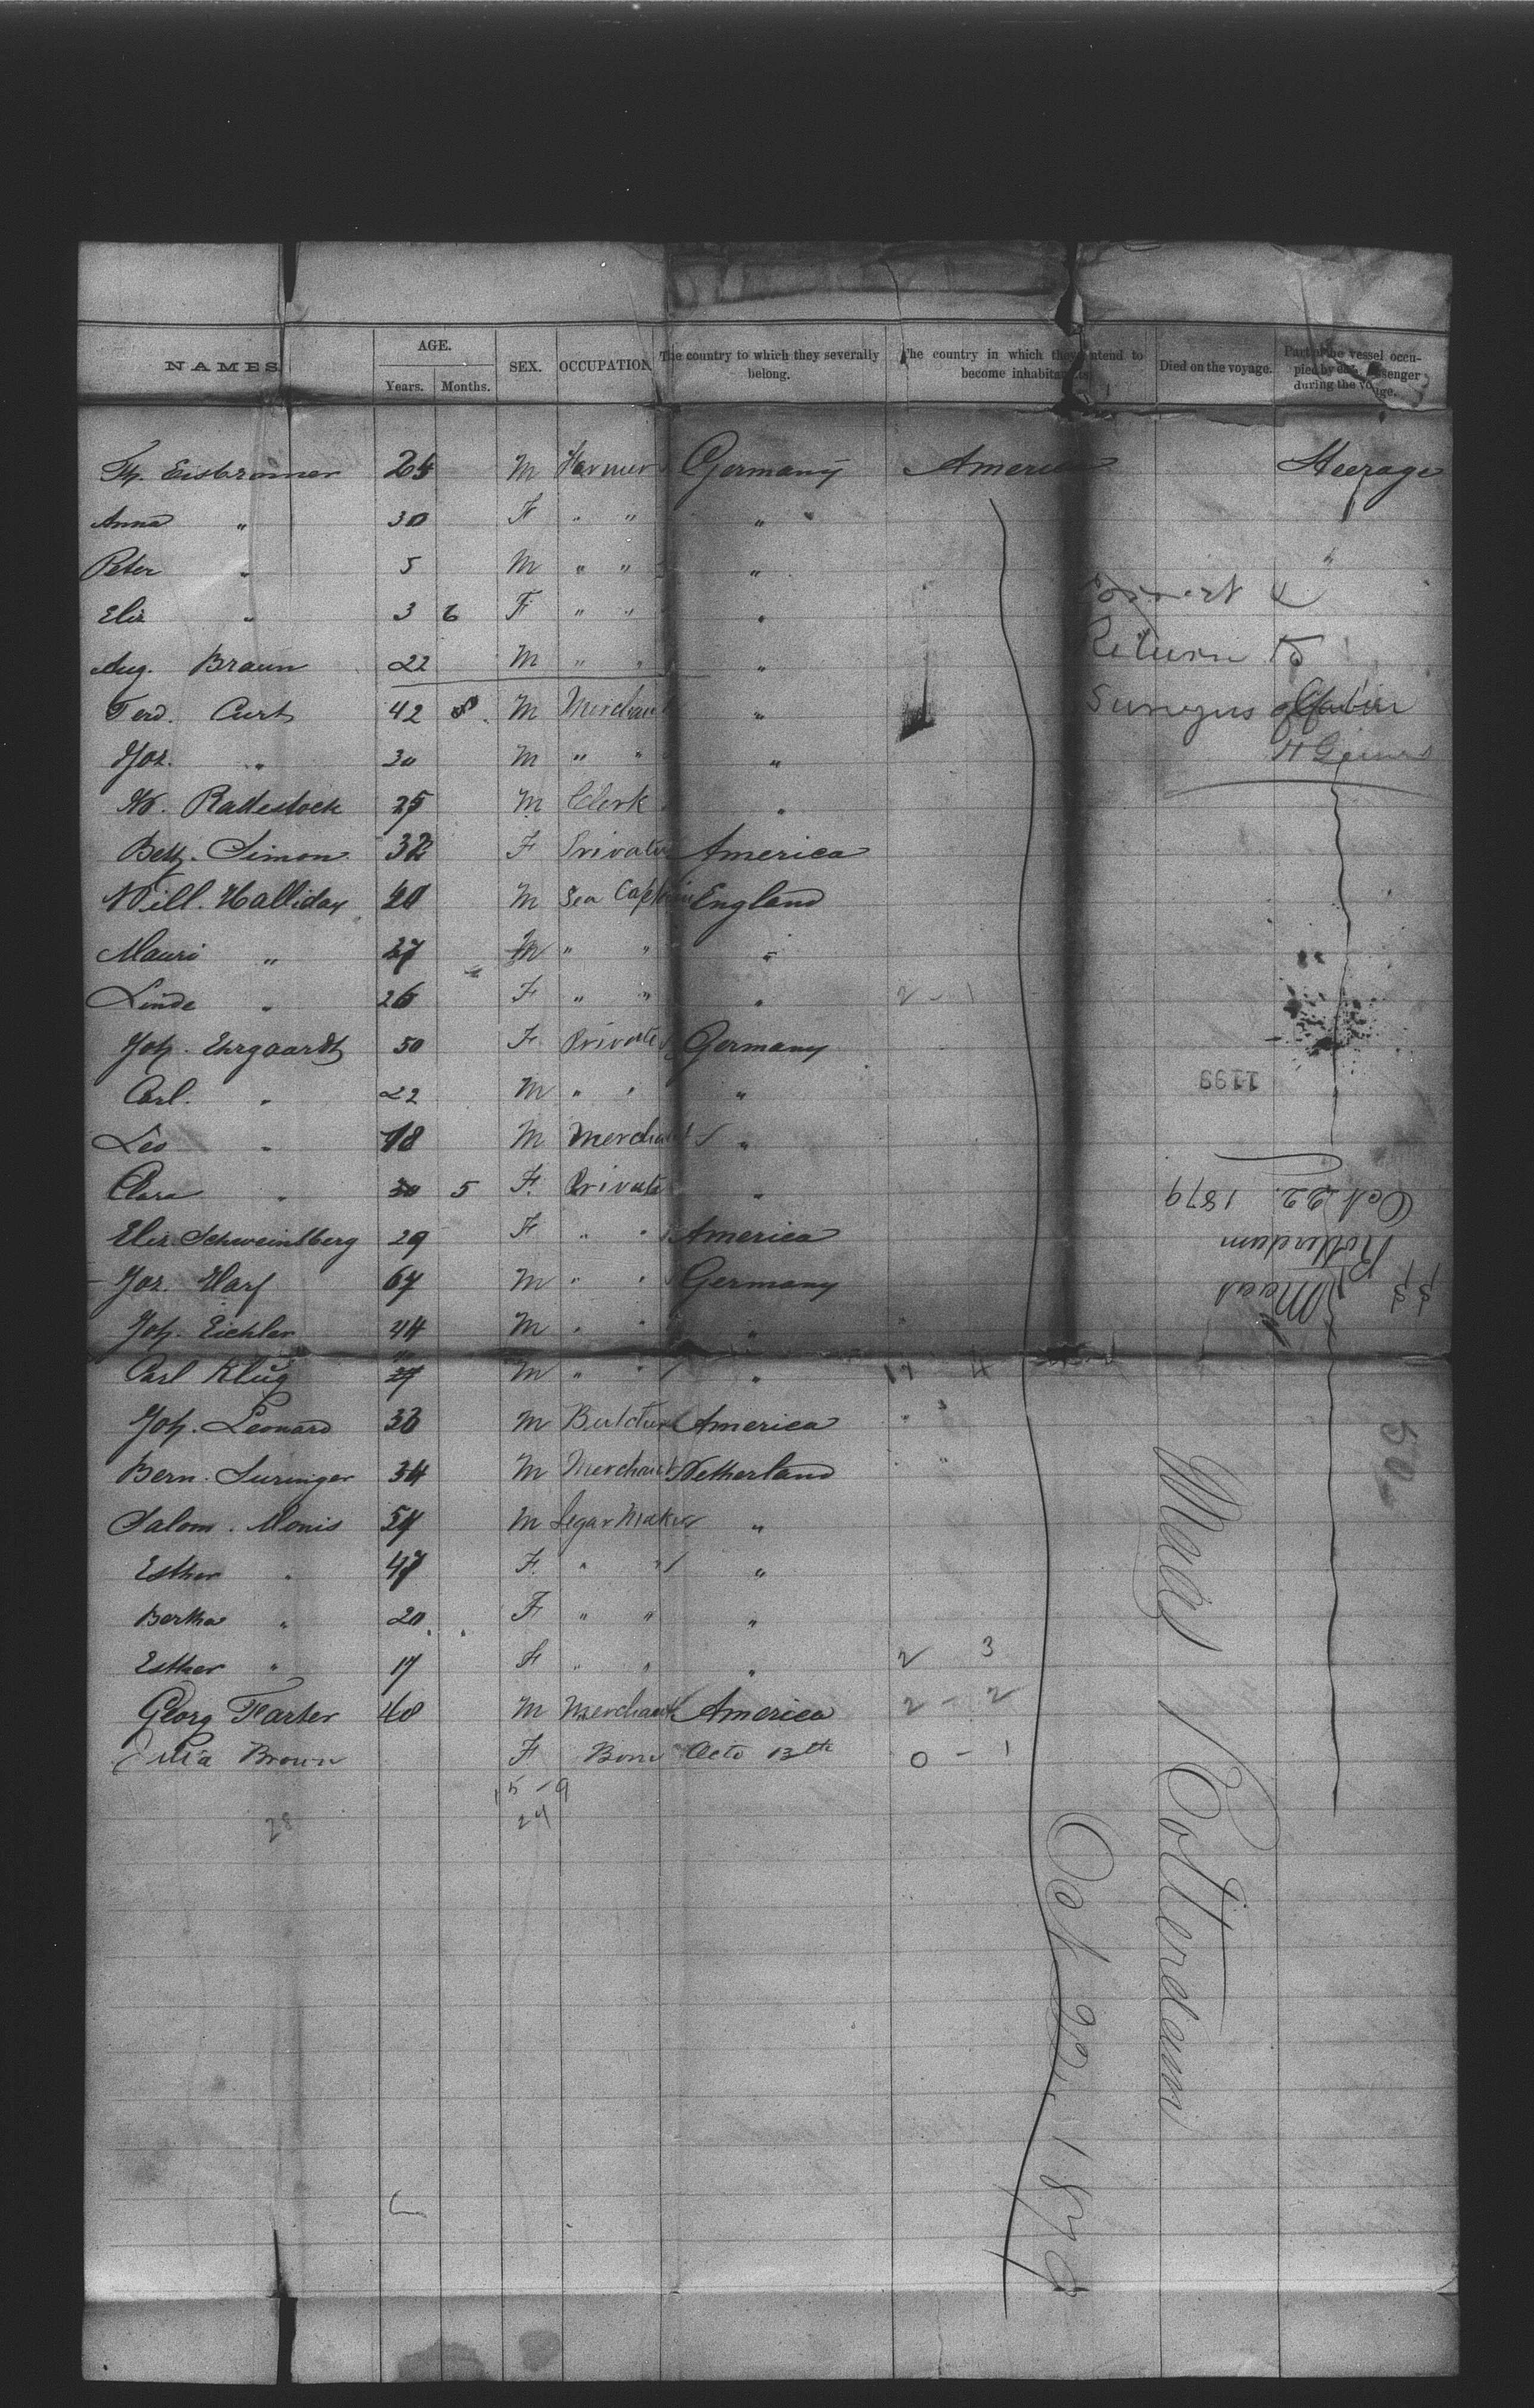 NAMES AGE. Years. Months. SEX. OCCUPATION The country to which they severally belong. The country in which they intend to become inhabitants. Died on the voyage. Part of the vessel occupied by each passenger during the voyage.
Th. Eisbronner 24 M Farmer Germany America Steerage
Anna " 30 F " " "
Peter " 5 M " " " "
Elis " 3 6 F " " "
Aug. Braun 22 M " " "
Correct &
Return to
Ferd. Curts 42 8 M Merchant "
Surveyors
Jos. " 30 M " " "
Radestock 25 M Clerk "
Simon 32 F Private America
Will. Halliday 40 M Sea Captain England
Mauri " 27 M " " "
Linde " 26 F " " " 2 - 1
Joh. Ehrgaardt 50 F Private Germany
Carl. " 22 M " " "
1199
Leo " 18 M Merchant "
Clara " 30 5 F. Private "
Oct 22. 1879
Elis Schweintberg 29 F " " America
Rotterdam
Jos. Harf 67 M " " Germany
SS Maas
Joh. Eichler 44 M " " "
Carl Klug 27 M " " " 17 4
Joh. Leonard 36 M Butcher America
Bern. Suringer 34 M Merchant Netherland
Salom. Monis 54 M Segar Maker "
Esther " 47 F. " " "
Bertha " 20 F " " "
Esther " 17 F " " " 2 3
Georg Farter 40 M Merchant America 2 - 2
Brown F Born Octo 13th 0 - 1
15 - 9
24
28
Maas Rotterdam
Oct 22. 1879